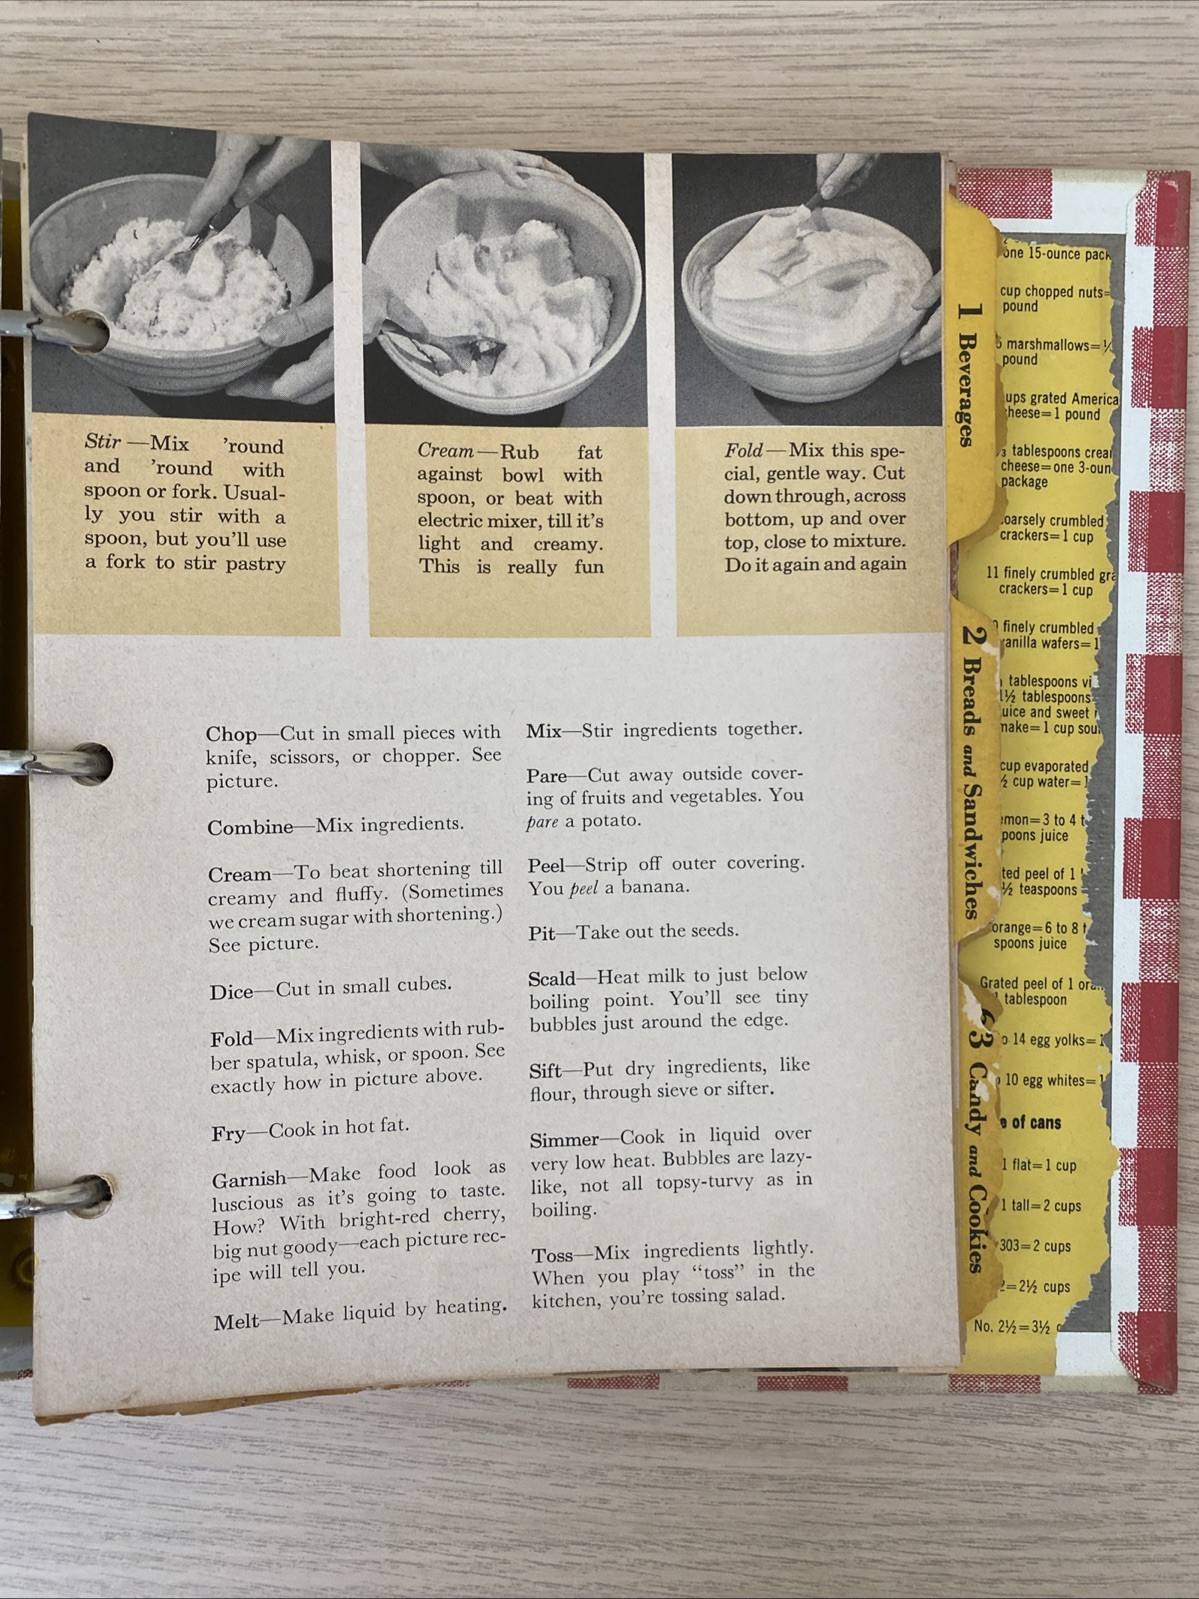 Stir—Mix ’round
and ’round with
spoon or fork. Usual-
ly you stir with a
spoon, but you’ll use
a fork to stir pastry
Cream—Rub fat
against bowl with
spoon, or beat with
electric mixer, till it’s
light and creamy.
This is really fun
Fold—Mix this spe-
cial, gentle way. Cut
down through, across
bottom, up and over
top, close to mixture.
Do it again and again
Chop—Cut in small pieces with
knife, scissors, or chopper. See
picture.
Combine—Mix ingredients.
Cream—To beat shortening till
creamy and fluffy. (Sometimes
we cream sugar with shortening.)
See picture.
Dice—Cut in small cubes.
Fold—Mix ingredients with rub-
ber spatula, whisk, or spoon. See
exactly how in picture above.
Fry—Cook in hot fat.
Garnish—Make food look as
luscious as it’s going to taste.
How? With bright-red cherry,
big nut goody—each picture rec-
ipe will tell you.
Melt—Make liquid by heating.
Mix—Stir ingredients together.
Pare—Cut away outside cover-
ing of fruits and vegetables. You
pare a potato.
Peel—Strip off outer covering.
You peel a banana.
Pit—Take out the seeds.
Scald—Heat milk to just below
boiling point. You’ll see tiny
bubbles just around the edge.
Sift—Put dry ingredients, like
flour, through sieve or sifter.
Simmer—Cook in liquid over
very low heat. Bubbles are lazy-
like, not all topsy-turvy as in
boiling.
Toss—Mix ingredients lightly.
When you play “toss” in the
kitchen, you’re tossing salad.
1 Beverages
2 Breads and Sandwiches
3 Candy and Cookies
one 15-ounce pack
cup chopped nuts=
pound
marshmallows=
pound
ups grated America
heese=1 pound
tablespoons crea
cheese=one 3-oun
package
oarsely crumbled
crackers=1 cup
11 finely crumbled gra
crackers=1 cup
finely crumbled
anilla wafers=1
tablespoons vi
1½ tablespoons
uice and sweet
make=1 cup sou
cup evaporated
½ cup water=
emon=3 to 4 t
poons juice
ted peel of 1
½ teaspoons
orange=6 to 8 t
spoons juice
Grated peel of 1 ora
1 tablespoon
o 14 egg yolks=1
10 egg whites=1
e of cans
1 flat=1 cup
1 tall=2 cups
303=2 cups
2=2½ cups
No. 2½=3½ c